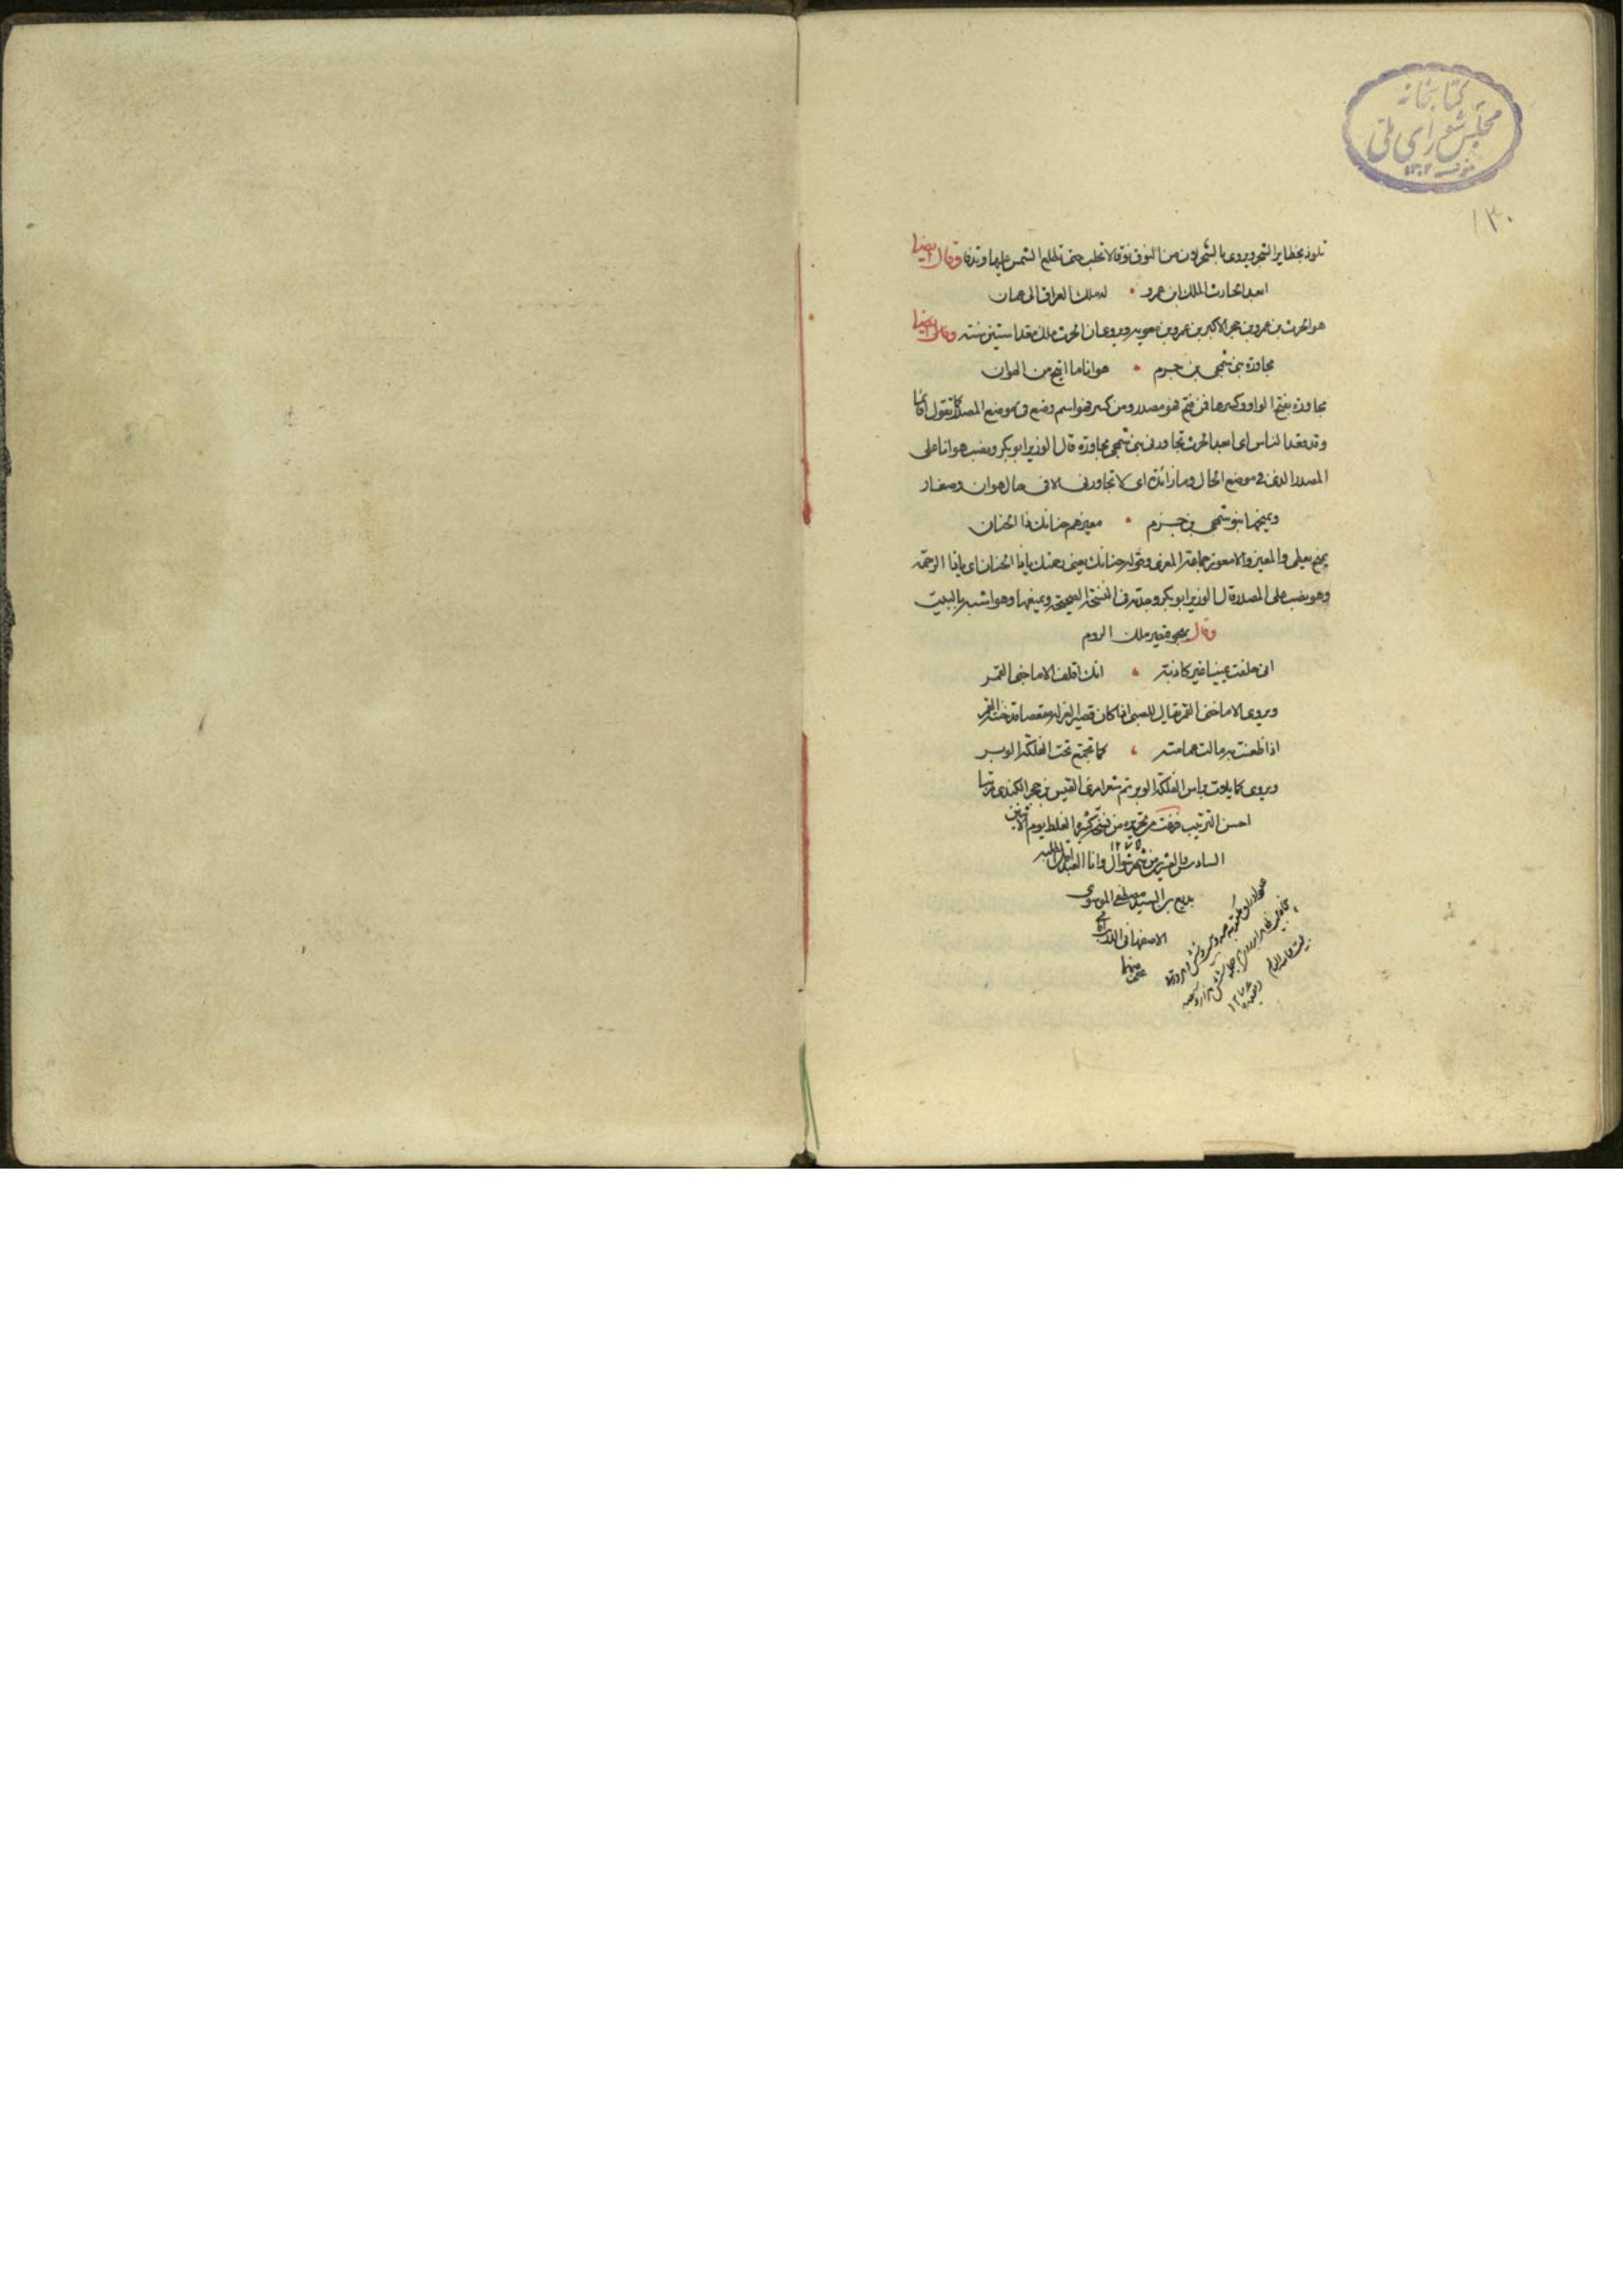 كتابخانه
مجلس شورای ملی
١٣٠٢
١٣٠
تلوذ بحظاير الشجر ويروى بالشجر من النوق نوق لا تحلب حتى تطلع الشمس عليها وتدفا وقال ايضا
ابعد الحارث الملك ابن عمرو • له ملك العراق الى عمان
هو الحرث بن عمرو بن حجر الاكبر بن عمرو بن معويه ويروى ان الحرث ملك معدا ستين سنته وقال ايضا
مجاورة بنى شمجى بن جرم • هوانا ما اتيح من الهوان
مجاورة بفتح الواو وكسرها فمن فتح فهو مصدر ومن كسر فهو اسم وضع فى موضع المصدر كما تقول اقائما
وقد قعد الناس اى ابعد الحرث تجاور بنى شمجى مجاورة قال الوزير ابو بكر ونصب هوانا على
المصدر الذى فى موضع الحال وما زائدة اى لا تجاورنى الا فى حال هوان وصغار
ويمنحها بنو شمجى بن جرم • معيزهم حنانك ذا الحنان
يمنح يعطى والمعيز والامعوز جماعة المعزى وقوله حنانك يعنى رحمتك يا ذا الحنان اى يا ذا الرحمة
وهو نصب على المصدر قال الوزير ابو بكر وجدته فى النسخة الصحيحة ويمنعها وهو اشبه بالبيت
وقال يهجو قيصر ملك الروم
انى حلفت يمينا غير كاذبة • انك اقلف الا ما جنى القمر
ويروى الا ما ختن القمر يقال للصبى اذا كان قصير الغرلة مقلصا قد ختنه القمر
اذا طعنت به مالت عمامته • كما تجمع تحت الفلكة الوبر
ويروى كما يلوث براس الفلكة الوبر تم شعر امرئ القيس بن حجر الكندى مرتبا
احسن الترتيب فرغت من تحريره من نسخة كثيرة الغلط يوم الاثنين
السادس والعشرين من شهر شوال ١٢٧٥ وانا العبد
بديع بن السيد مصطفى الموسوى
الاصفهانى
عفى عنهما